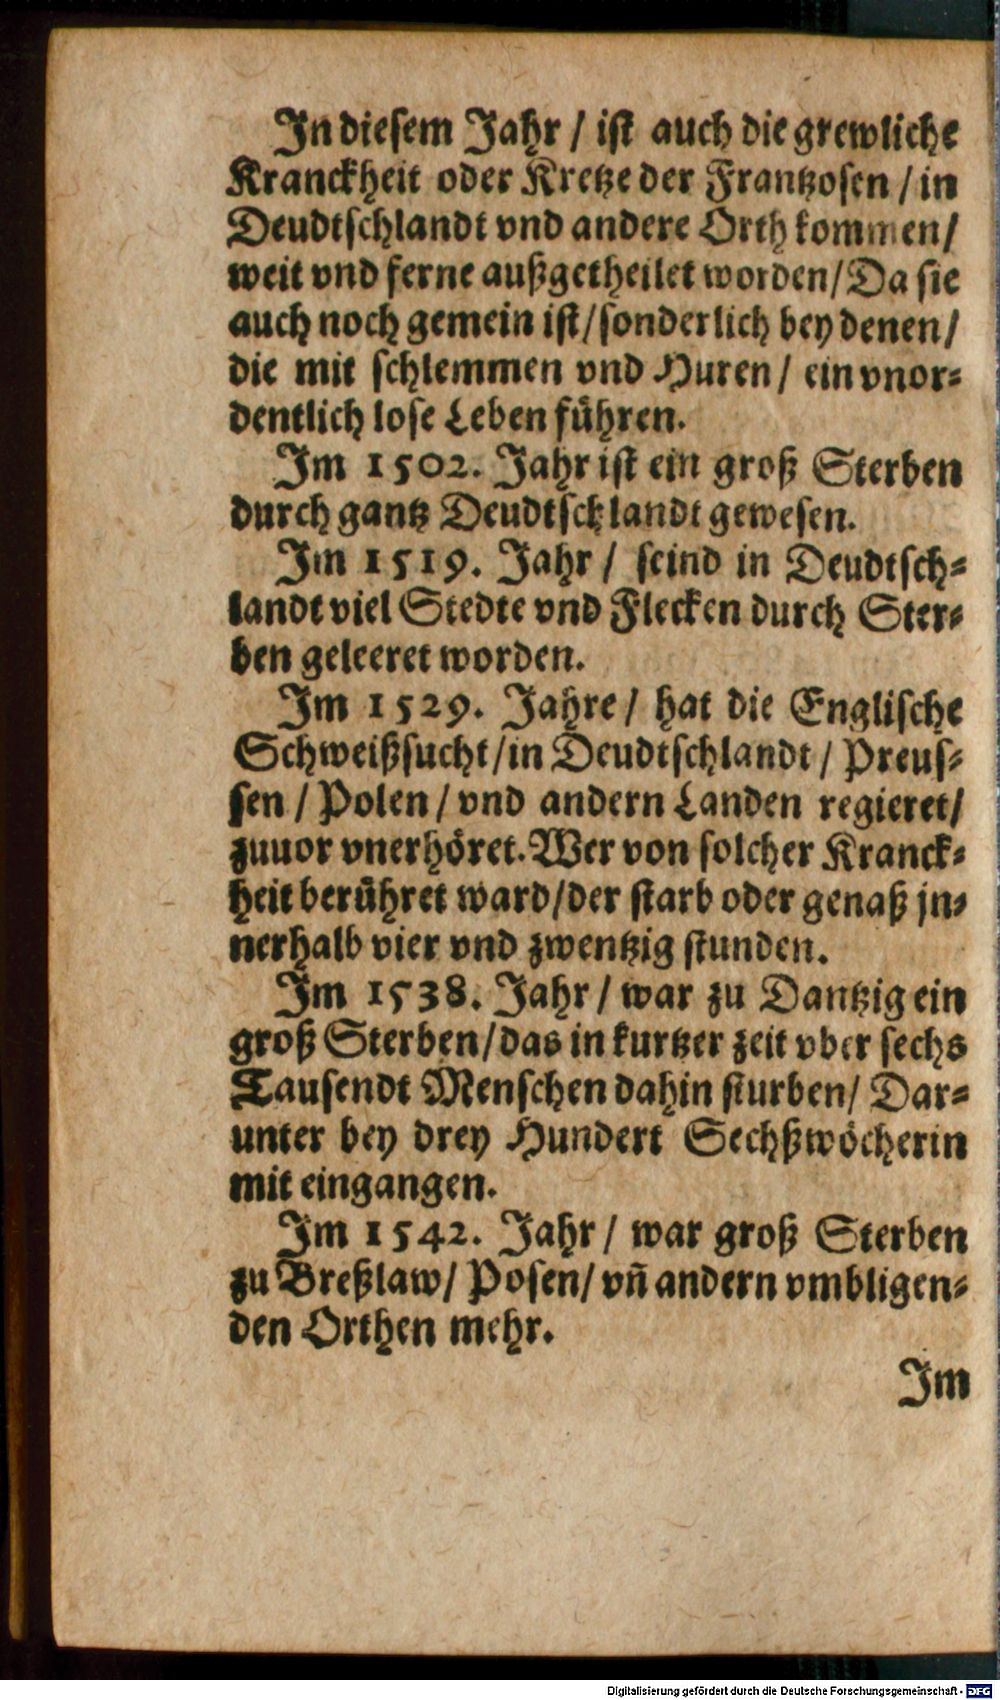 In diesem Jahr / ist auch die grewliche
Kranckheit oder Kretze der Frantzosen / in
Deudtschlandt vnd andere Orth kommen /
weit vnd ferne außgetheilet worden / Da sie
auch noch gemein ist / sonderlich bey denen /
die mit schlemmen vnd Huren / ein vnor-
dentlich lose Leben führen.
Im 1502. Jahr ist ein groß Sterben
durch gantz Deudtschlandt gewesen.
Im 1519. Jahr / seind in Deudtsch-
landt viel Stedte vnd Flecken durch Ster-
ben geleeret worden.
Im 1529. Jahre / hat die Englische
Schweißsucht / in Deudtschlandt / Preus-
sen / Polen / vnd andern Landen regieret /
zuuor vnerhöret. Wer von solcher Kranck-
heit berühret ward / der starb oder genaß jn-
nerhalb vier vnd zwentzig stunden.
Im 1538. Jahr / war zu Dantzig ein
groß Sterben / das in kurtzer zeit vber sechs
Tausendt Menschen dahin sturben / Dar-
unter bey drey Hundert Sechßwöcherin
mit eingangen.
Im 1542. Jahr / war groß Sterben
zu Breßlaw / Posen / vñ andern vmbligen-
den Orthen mehr.
Im
Digitalisierung gefördert durch die Deutsche Forschungsgemeinschaft - DFG